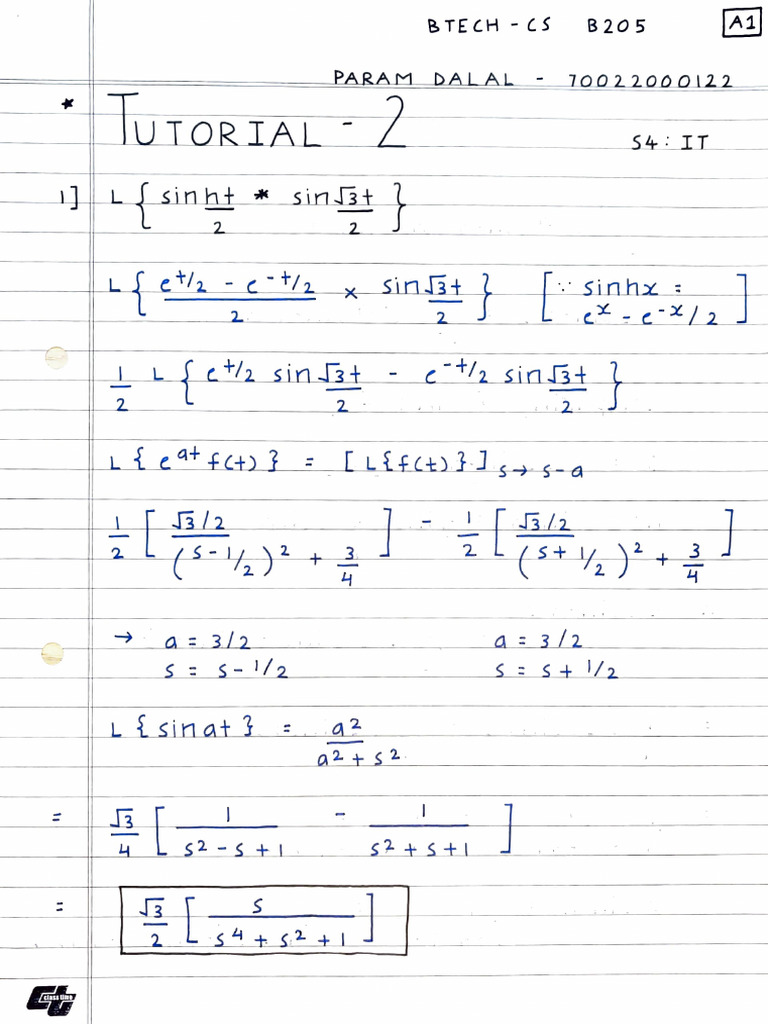 BTECH - CS B205 A1
PARAM DALAL - 70022000122
* TUTORIAL - 2 S4 : IT
1] L { sinht/2 * sin√3t/2 }
L { e^t/2 - e^-t/2 / 2 × sin√3t/2 } [ ∵ sinhx = e^x - e^-x/2 ]
1/2 L { e^t/2 sin√3t/2 - e^-t/2 sin√3t/2 }
L { e^at f(t) } = [ L{f(t)} ] s→s-a
1/2 [ √3/2 / (s-1/2)^2 + 3/4 ] - 1/2 [ √3/2 / (s+1/2)^2 + 3/4 ]
→ a = 3/2 a = 3/2
s = s-1/2 s = s+1/2
L { sinat } = a^2 / a^2 + s^2
= √3/4 [ 1 / s^2 - s + 1 - 1 / s^2 + s + 1 ]
= √3/2 [ s / s^4 + s^2 + 1 ]
class time